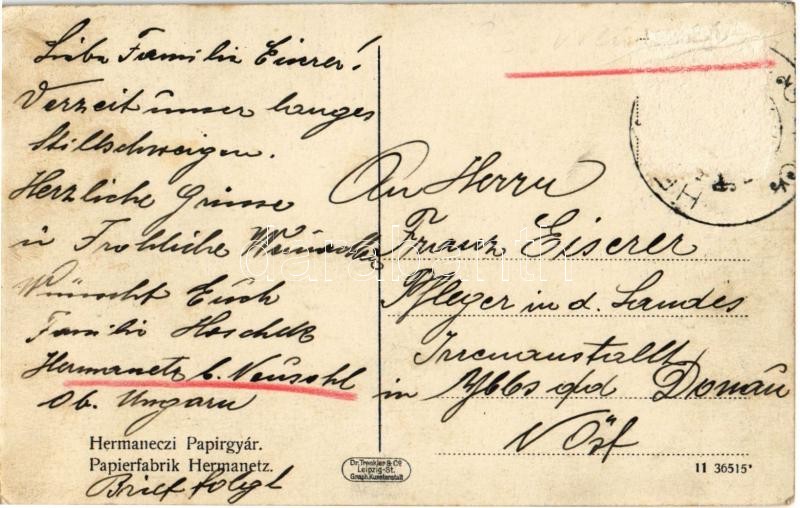 Liebe Familie Eiserer!
Verzeit unser langes
Stillschweigen.
Herzliche Grüsse
u Fröhliche
Wünscht Euch
Familie
Hermanetz b. Neusohl
Ob. Ungarn
Hermaneczi Papirgyár.
Papierfabrik Hermanetz.
Brief folgt
Dr. Trenkler & Co
Leipzig-St.
Graph. Kunstanstalt
An Herrn
Franz Eiserer
Pfleger in d. Landes
Irrenanstallt
in Ybbs a/d Donau
NÖst
11 36515*
darabanth